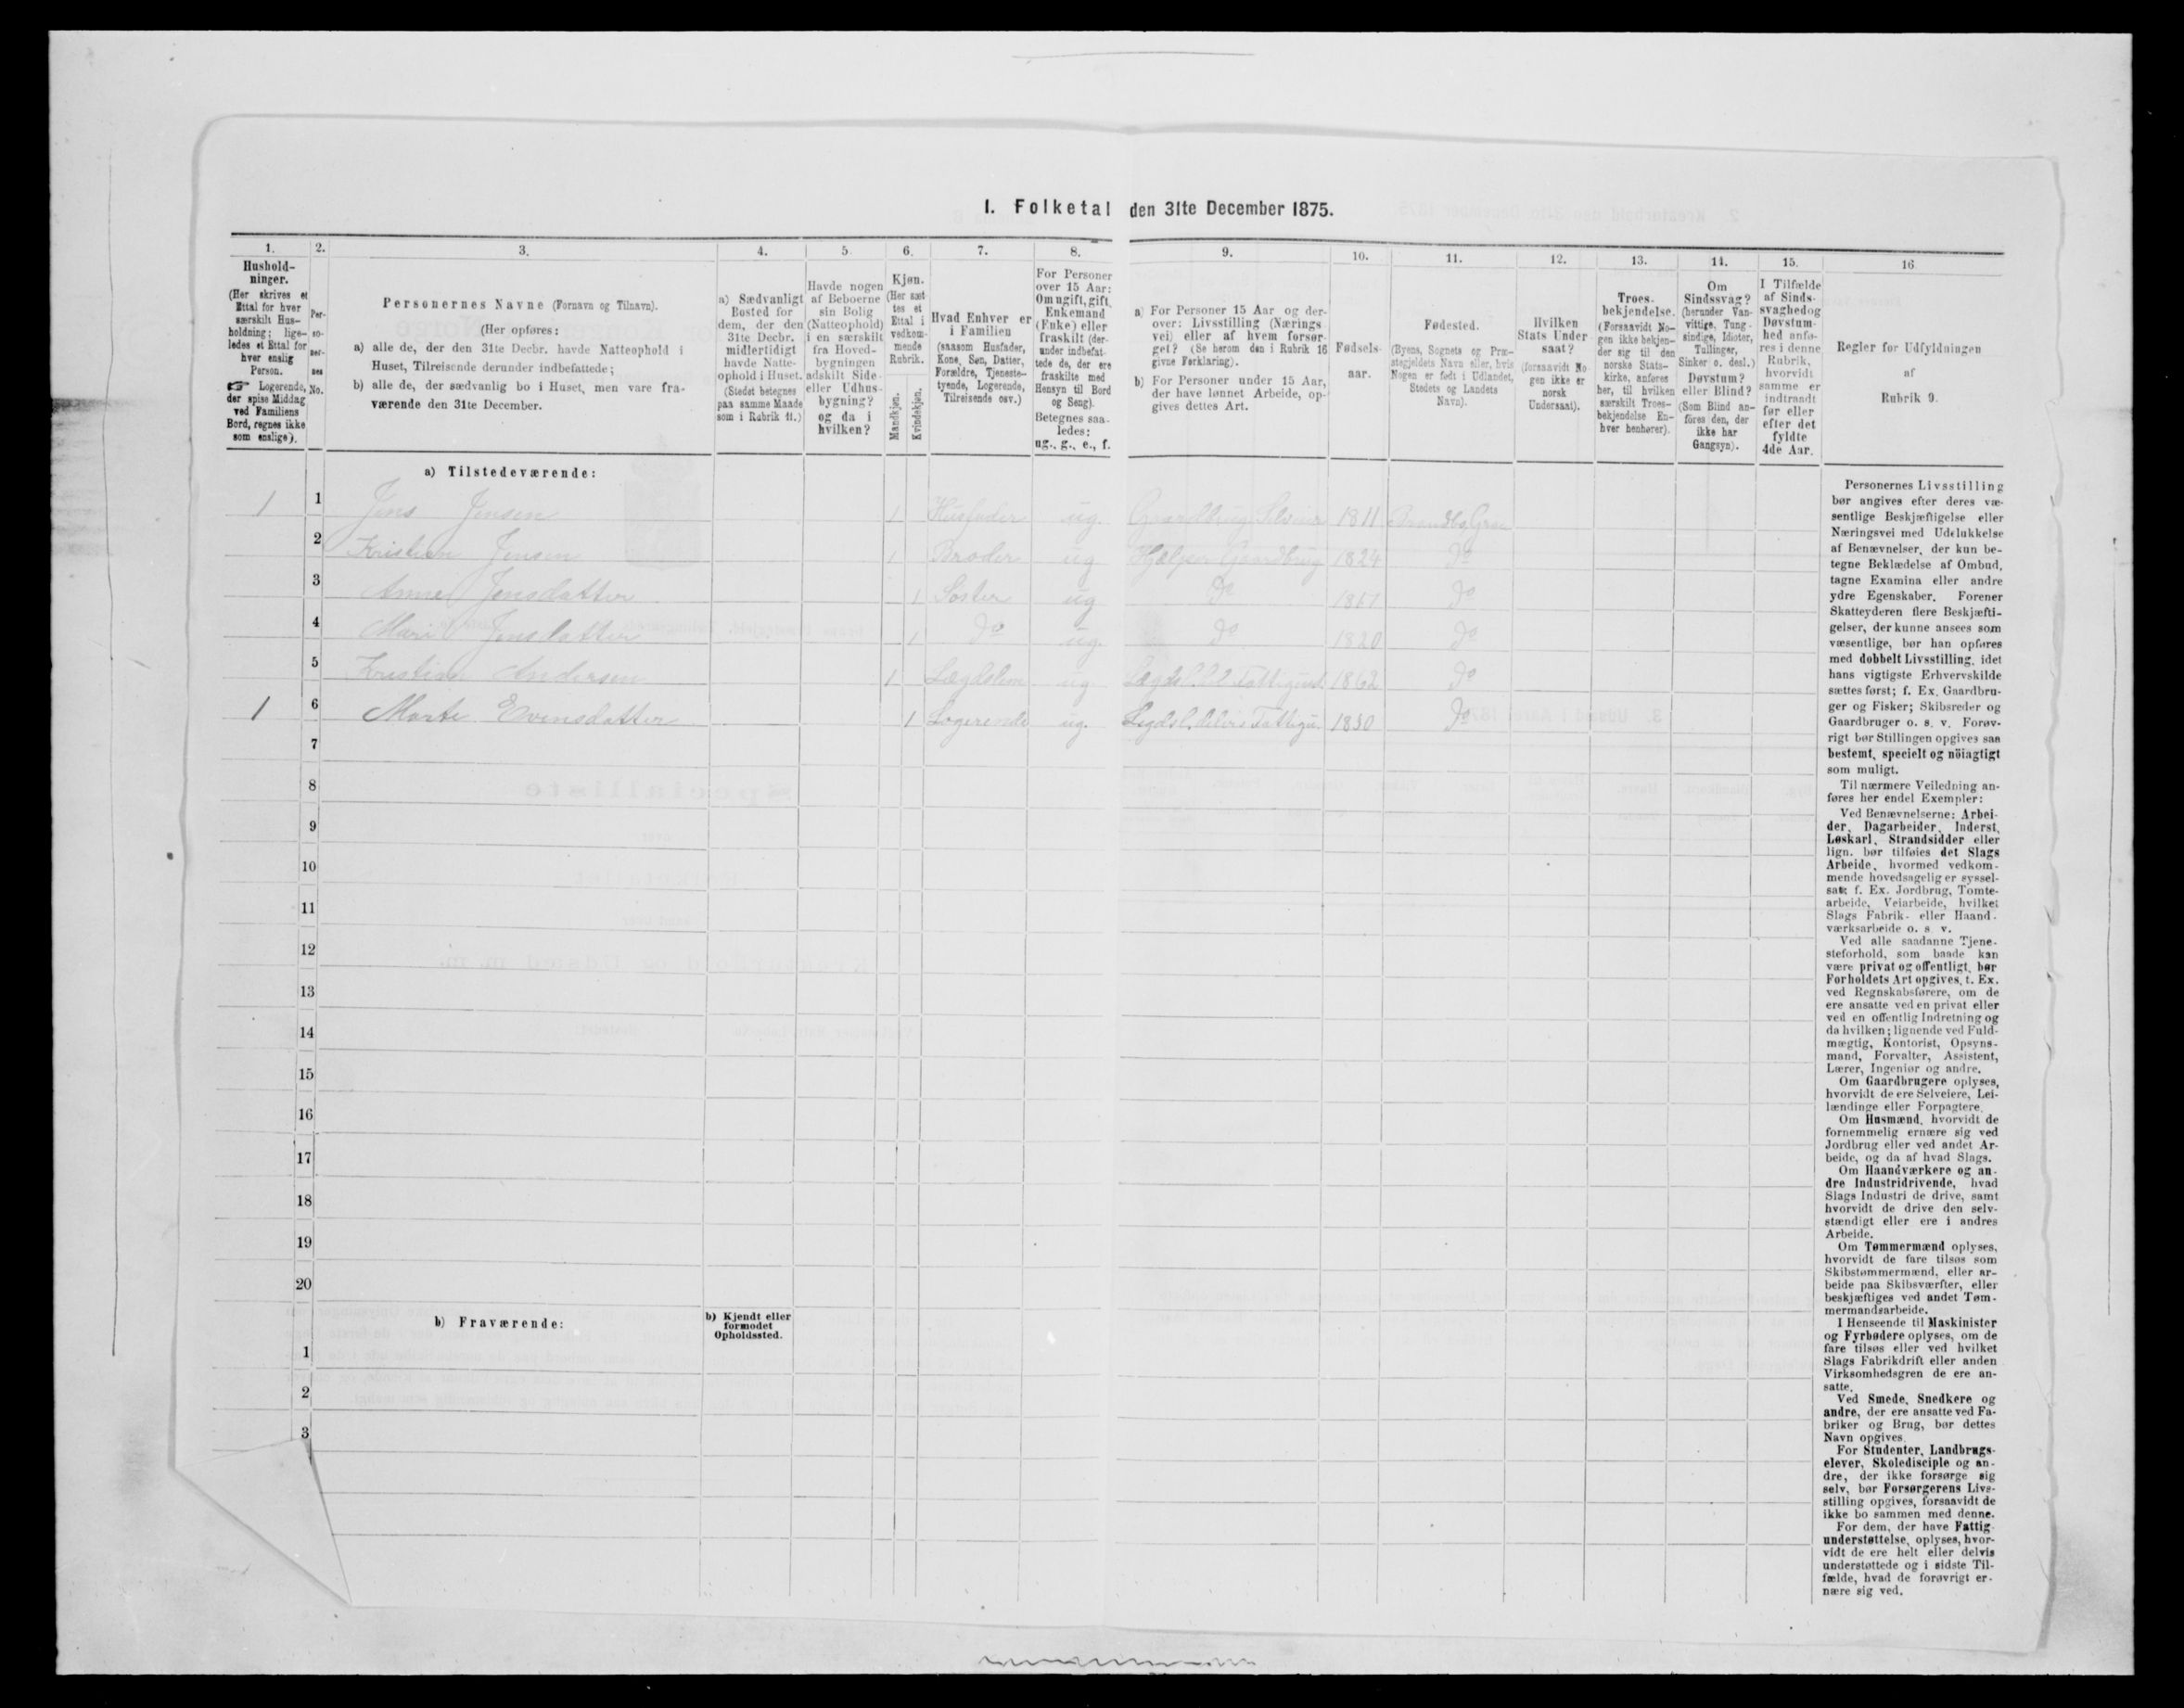 I. Folketal den 31te December 1875.
1.
Hushold-
ninger.
(Her skrives et
Ettal for hver
særskilt Hus-
holdning; lige-
ledes et Ettal for
hver enslig
Person.
☞ Logerende,
der spise Middag
ved Familiens
Bord, regnes ikke
som enslige).
2.
Per-
so-
ner-
nes
No.
3.
Personernes Navne (Fornavn og Tilnavn).
(Her opføres:
a) alle de, der den 31te Decbr. havde Natteophold i
Huset, Tilreisende derunder indbefattede;
b) alle de, der sædvanlig bo i Huset, men vare fra-
værende den 31te December.
4.
a) Sædvanligt
Bosted for
dem, der den
31te Decbr.
midlertidigt
havde Natte-
ophold i Huset.
(Stedet betegnes
paa samme Maade
som i Rubrik 11.)
5
Havde nogen
af Beboerne
sin Bolig
(Natteophold)
i en særskilt
fra Hoved-
bygningen
adskilt Side-
eller Udhus-
bygning?
og da i
hvilken?
6.
Kjøn.
(Her sæt
tes et
Ettal i
vedkom-
mende
Rubrik.
Mandkjøn.
Kvindekjøn.
7.
Hvad Enhver er
i Familien
(saasom Husfader,
Kone, Søn, Datter,
Forældre, Tjeneste-
tyende, Logerende,
Tilreisende osv.)
8.
For Personer
over 15 Aar:
Om ugift, gift,
Enkemand
(Enke) eller
fraskilt (der-
under indbefat-
tede de, der ere
fraskilte med
Hensyn til Bord
og Seng).
Betegnes saa-
ledes:
ug., g., e., f.
9.
a) For Personer 15 Aar og der-
over: Livsstilling (Nærings
vei) eller af hvem forsør-
get? (Se herom den i Rubrik 16
givne Forklaring).
b) For Personer under 15 Aar,
der have lønnet Arbeide, op-
gives dettes Art.
10.
Fødsels-
aar.
11.
Fødested.
(Byens, Sognets og Præ-
stegjeldets Navn eller, hvis
Nogen er født i Udlandet,
Stedets og Landets
Navn).
12.
Hvilken
Stats Under
saat?
(forsaavidt No-
gen ikke er
norsk
Undersaat).
13.
Troes-
bekjendelse.
(Forsaavidt No-
gen ikke bekjen-
der sig til den
norske Stats-
kirke, anføres
her, til hvilken
særskilt Troes-
bekjendelse En-
hver henhører).
14.
Om
Sindssvag?
(herunder Van-
vittige, Tung-
sindige, Idioter,
Tullinger,
Sinker o. desl.)
Døvstum?
eller Blind?
(Som Blind an-
føres den, der
ikke har
Gangsyn).
15.
I Tilfælde
af Sinds-
svaghed og
Døvstum-
hed anfø-
res i denne
Rubrik,
hvorvidt
samme er
indtraadt
før eller
efter det
fyldte
4de Aar.
16
Regler for Udfyldningen
af
Rubrik 9.
a) Tilstedeværende:
1 1 Jens Jensen 1 Husfader ug. Gaardbrug. Selveier 1811
2 Kristian Jensen 1 Broder ug Hjælper Gaardbrug 1824 Do
3 Anne Jensdatter 1 Søster ug Do Do
4 Mari Jensdatter 1 Do ug. Do 1820 Do
5 Kristian Andersen 1 Lægdslem ug 1862 Do
1 6 Marte Evensdatter 1 Logerende ug. 1830 Do
7
8
9
10
11
12
13
14
15
16
17
18
19
20
b) Fraværende:
b) Kjendt eller
formodet
Opholdssted.
1
2
3
Personernes Livsstilling
bør angives efter deres væ-
sentlige Beskjæftigelse eller
Næringsvei med Udelukkelse
af Benævnelser, der kun be-
tegne Beklædelse af Ombud,
tagne Examina eller andre
ydre Egenskaber. Forener
Skatteyderen flere Beskjæfti-
gelser, der kunne ansees som
væsentlige, bør han opføres
med dobbelt Livsstilling, idet
hans vigtigste Erhvervskilde
sættes først; f. Ex. Gaardbru-
ger og Fisker; Skibsreder og
Gaardbruger o. s. v. Forøv-
rigt bør Stillingen opgives saa
bestemt, specielt og nöiagtigt
som muligt.
Til nærmere Veiledning an-
føres her endel Exempler:
Ved Benævnelserne: Arbei-
der, Dagarbeider, Inderst,
Løskarl, Strandsidder eller
lign. bør tilføies det Slags
Arbeide, hvormed vedkom-
mende hovedsagelig er syssel-
sat; f. Ex. Jordbrug, Tomte-
arbeide, Veiarbeide, hvilket
Slags Fabrik- eller Haand-
værksarbeide o. s. v.
Ved alle saadanne Tjene-
steforhold, som baade kan
være privat og offentligt, bør
Forholdets Art opgives, t. Ex.
ved Regnskabsførere, om de
ere ansatte ved en privat eller
ved en offentlig Indretning og
da hvilken; lignende ved Fuld-
mægtig, Kontorist, Opsyns-
mand, Forvalter, Assistent,
Lærer, Ingeniør og andre.
Om Gaardbrugere oplyses,
hvorvidt de ere Selveiere, Lei-
lændinge eller Forpagtere.
Om Husmænd, hvorvidt de
fornemmelig ernære sig ved
Jordbrug eller ved andet Ar-
beide, og da af hvad Slags.
Om Haandværkere og an-
dre Industridrivende, hvad
Slags Industri de drive, samt
hvorvidt de drive den selv-
stændigt eller ere i andres
Arbeide.
Om Tømmermænd oplyses,
hvorvidt de fare tilsøs som
Skibstømmermænd, eller ar-
beide paa Skibsværfter, eller
beskjæftiges ved andet Tøm-
mermandsarbeide.
I Henseende til Maskinister
og Fyrbødere oplyses, om de
fare tilsøs eller ved hvilket
Slags Fabrikdrift eller anden
Virksomhedsgren de ere an-
satte.
Ved Smede, Snedkere og
andre, der ere ansatte ved Fa-
briker og Brug, bør dettes
Navn opgives.
For Studenter, Landbrugs-
elever, Skoledisciple og an-
dre, der ikke forsørge sig
selv, bør Forsørgerens Livs-
stilling opgives, forsaavidt de
ikke bo sammen med denne.
For dem, der have Fattig-
understøttelse, oplyses, hvor-
vidt de ere helt eller delvis
understøttede og i sidste Til-
fælde, hvad de forøvrigt er-
nære sig ved.